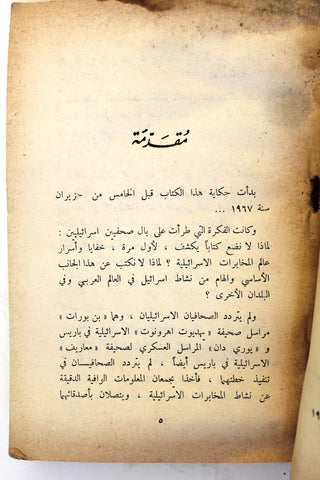 مُقَدّمَة
بدأت حكاية هذا الكتاب قبل الخامس من حزيران
سنة ١٩٦٧ ...
وكانت الفكرة التي طرأت على بال صحفيين اسرائيليين :
لماذا لا نضع كتاباً يكشف ، لأول مرة ، خفايا وأسرار
عالم المخابرات الاسرائيلية ؟ لماذا لا نكتب عن هذا الجانب
الأساسي والهام من نشاط اسرائيل في العالم العربي وفي
البلدان الأخرى ؟
ولم يتردد الصحافيان الاسرائيليان ، وهما » بن بورات «
مراسل صحيفة » يهديوت اهرونوت « الاسرائيلية في باريس
و » يوري دان « المراسل العسكري لصحيفة » معاريف «
الاسرائيلية في باريس أيضاً ، لم يتردد الصحافيــان في
تنفيذ خطتهما ، فأخذا يجمعان المعلومات الوافية الدقيقة
عن نشاط المخابرات الاسرائيلية ، ويتصلان بأصدقائهما
٥